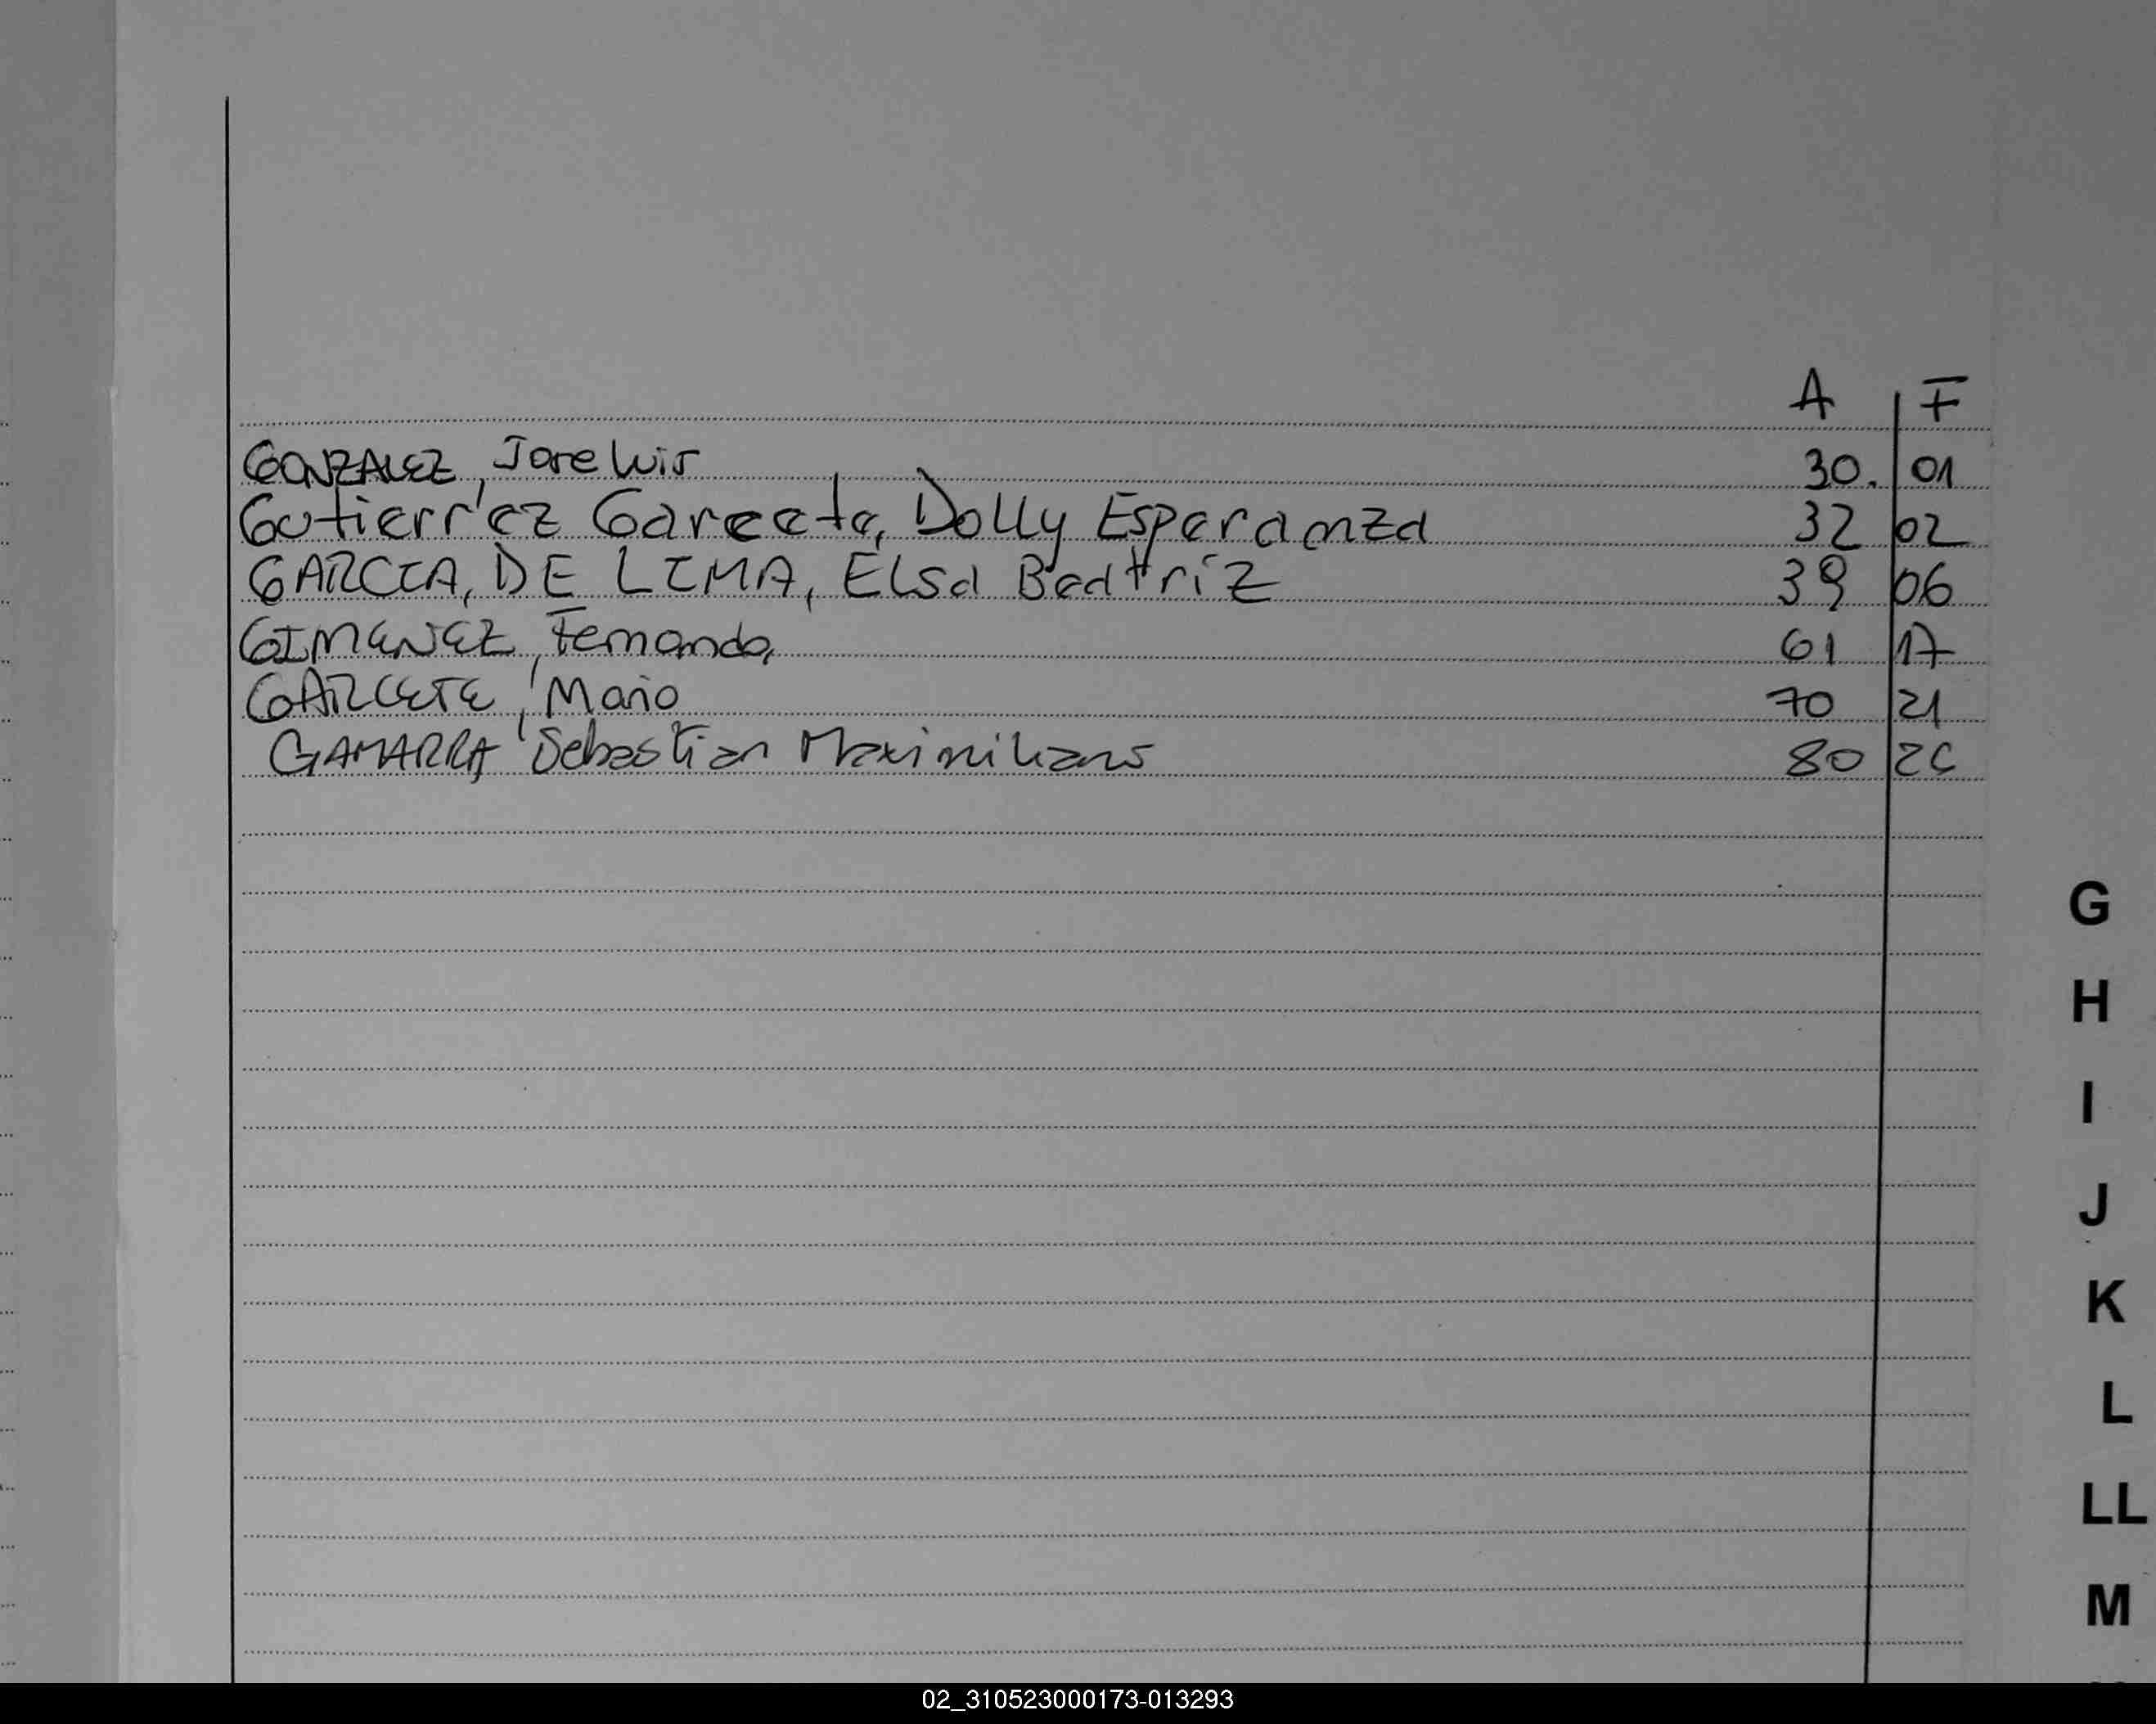 A F
GONZALEZ, Jose Luis 30. 01
Gutierr'ez Garcete, Dolly Esperanza 32 02
GARCIA, DE LIMA, Elsa Beatriz 39 06
GIMENEZ, Fernando, 61 17
GARCETE, Mario 70 21
GAMARRA, Sebastian Maximiliano 80 26
G
H
I
J
K
L
LL
M
02_310523000173-013293